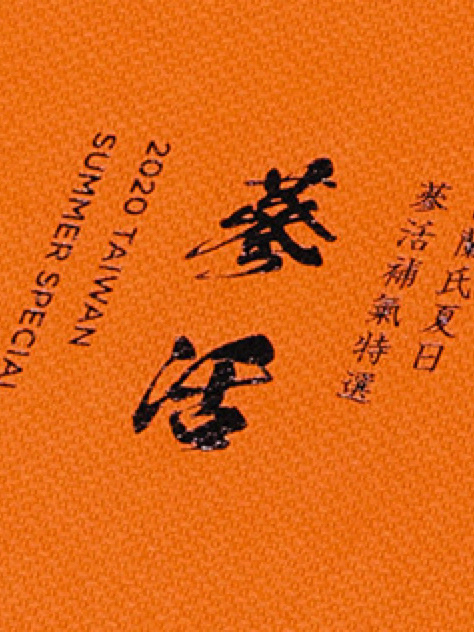 蘭氏夏日
蔘活補氣特選
蔘活
2020 TAIWAN
SUMMER SPECIAL